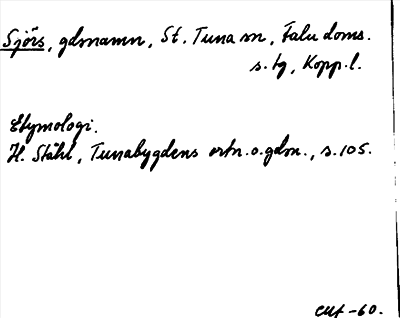 Sjörs, gdmnamn, St. Tuna sn, Falu doms.
s. tg, Kopp. l.
Etymologi.
H. Ståhl, Tunabygdens ortn. o. gdm., s. 105.
-60.